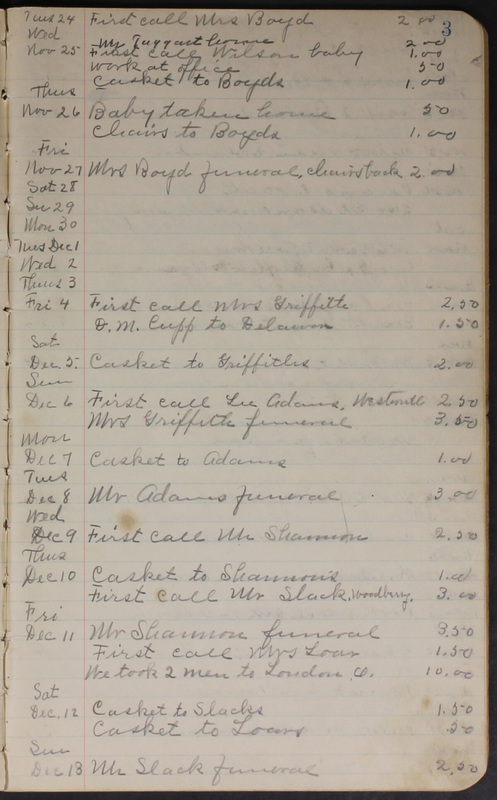 3
Tues 24 First call Mrs Boyd 2 00
Wed Mr Taggart home 2 00
Nov 25 First call Wilson baby 1.00
work at office 50
Casket to Boyds 1.00
Thus
Nov 26 Baby taken home 50
Chairs to Boyds 1.00
Fri
Nov 27 Mrs Boyd funeral, chairs back 2.00
Sat 28
Su 29
Mon 30
Tues Dec 1
Wed 2
Thurs 3
Fri 4 First call Mrs Griffith 2.50
D. M. Cupp to Delawon 1.50
Sat
Dec 5. Casket to Griffiths 2.00
Sun
Dec 6 First call Lee Adams, Westvill 2 50
Mrs Griffith funeral 3.50
Mon
Dec 7 Casket to Adams 1.00
Tues
Dec 8 Mr Adams funeral 3 00
Wed
Dec 9 First call Mr Shannon 2.50
Thus
Dec 10 Casket to Shannon's 1.00
First call Mr Slack, Woodbury. 3.00
Fri
Dec 11 Mr Shannon funeral 3.50
First call Mrs Loar 1.50
We took 2 men to London, O. 10.00
Sat
Dec. 12 Casket to Slacks 1.50
Casket to Loars .50
Sun
Dec 13 Mr Slack funeral 2.50